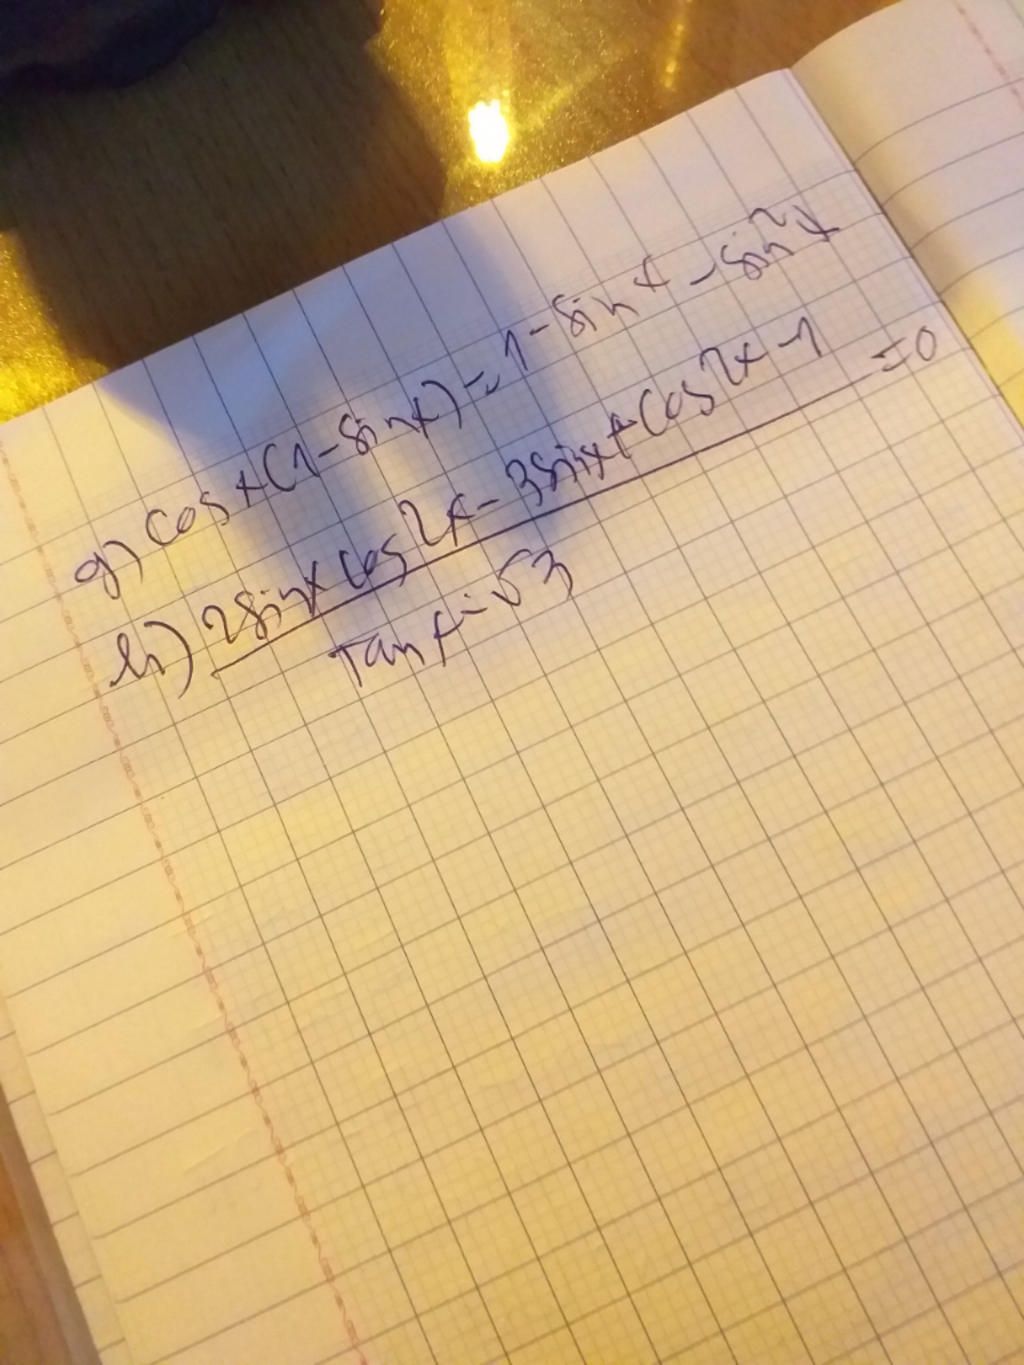 g) cosx(1-sinx)=1-sinx-sin²x
h) 2sinxcos2x-3sinx+cos2x-1 =0
Tanx-√3